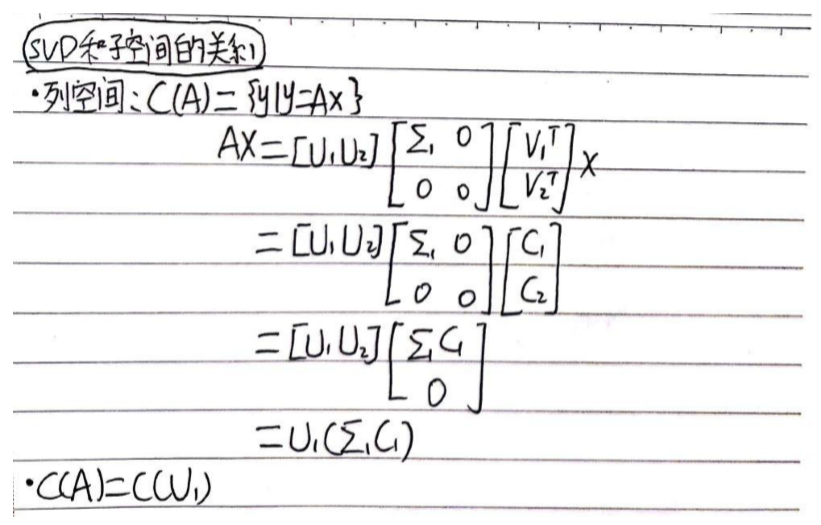 SVD和子空间的关系1
·列空间:C(A)={y|y=Ax}
AX=[U₁U₂][Σ₁ 0; 0 0][V₁ᵀ; V₂ᵀ]x
=[U₁U₂][Σ₁ 0; 0 0][C₁; C₂]
=[U₁U₂][Σ₁C₁; 0]
=U₁(Σ₁C₁)
·C(A)=C(U₁)